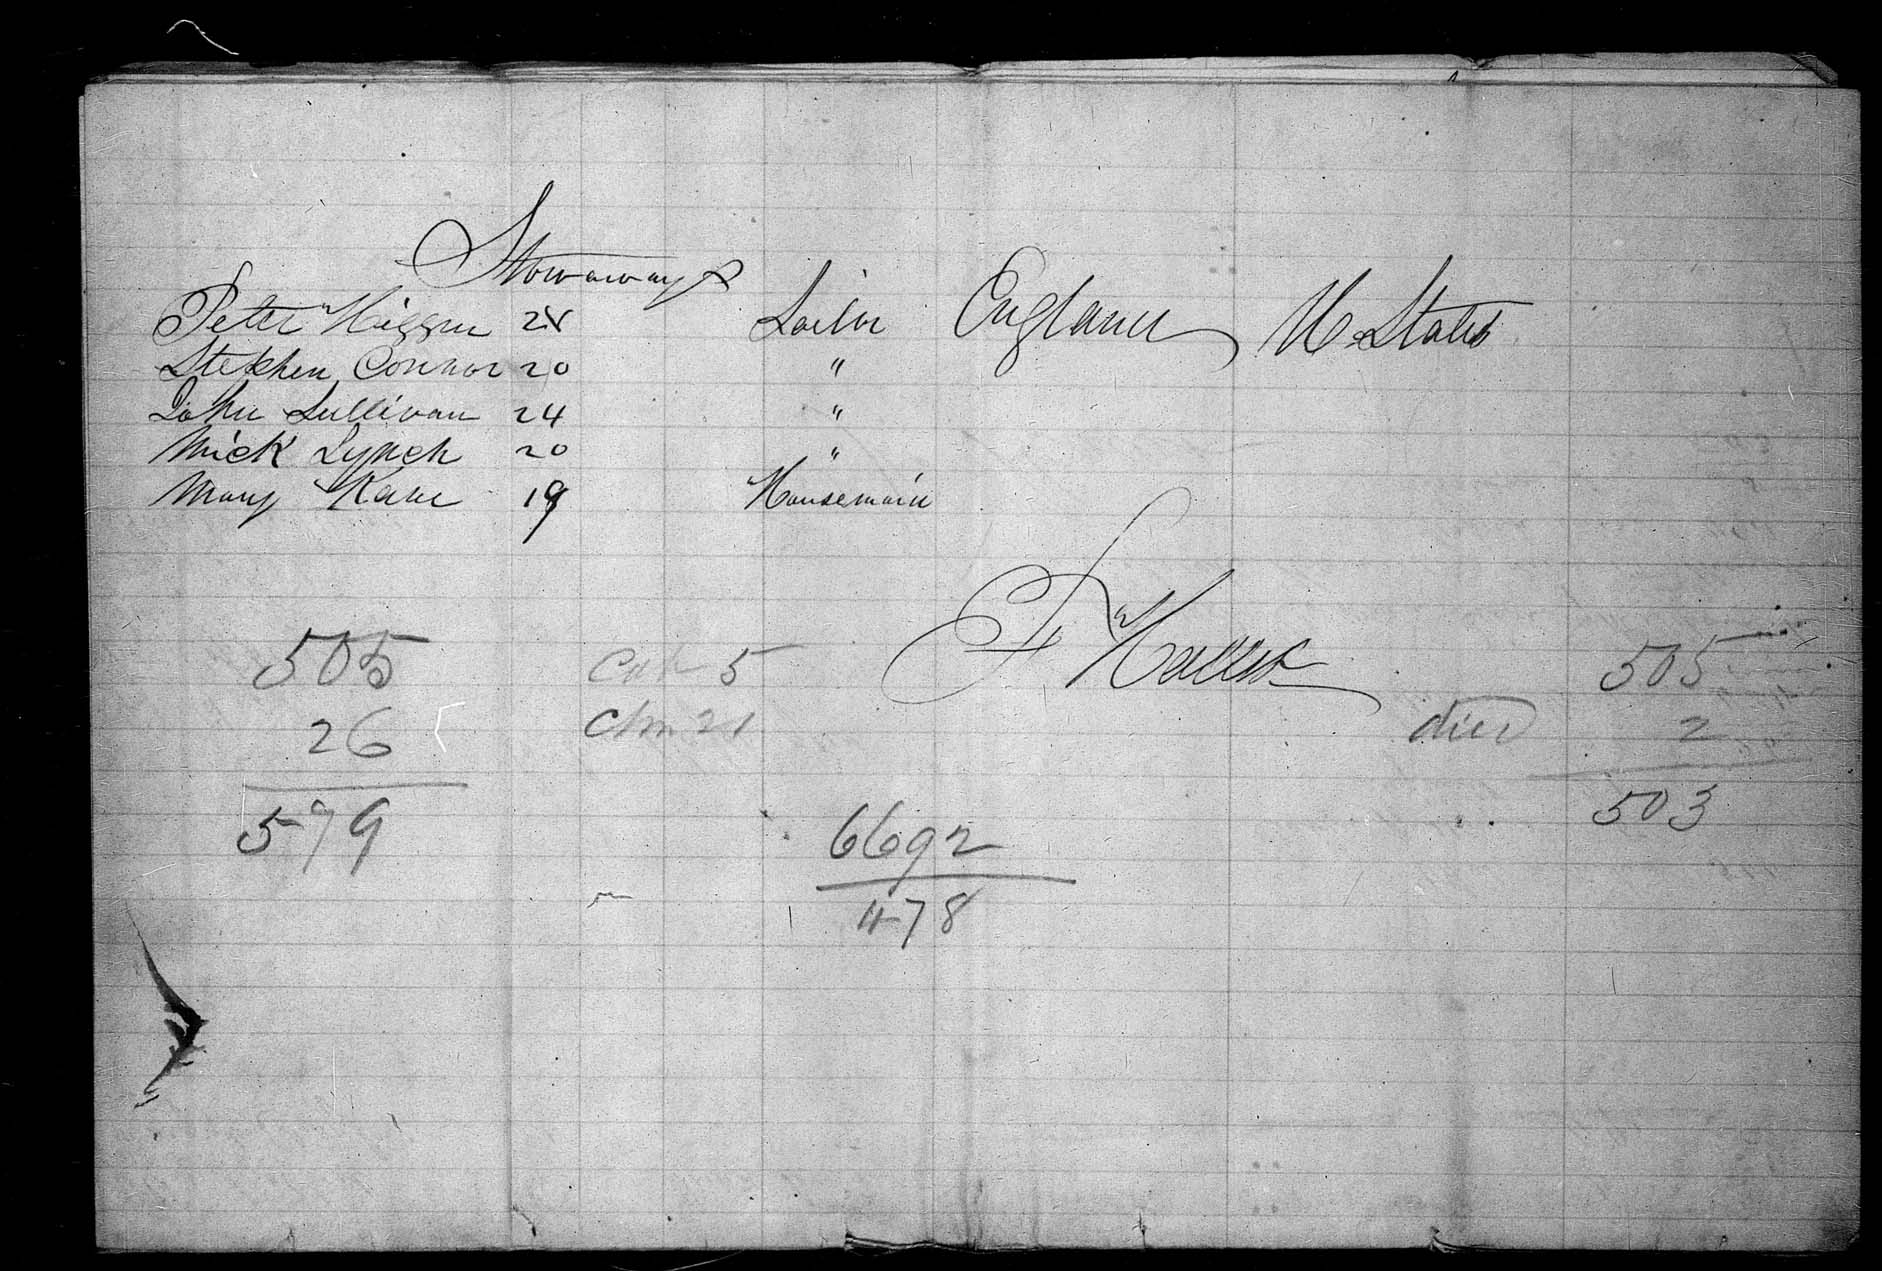 Stowaways
Peter Higgin 28 Sailor England U. States
Stephen Connor 20 "
John Sullivan 24 "
Mick Lynch 20 "
Mary Kane 19 Housemaid
F
505 5 505
26 Chn 21 died 2
579 503
6692
478